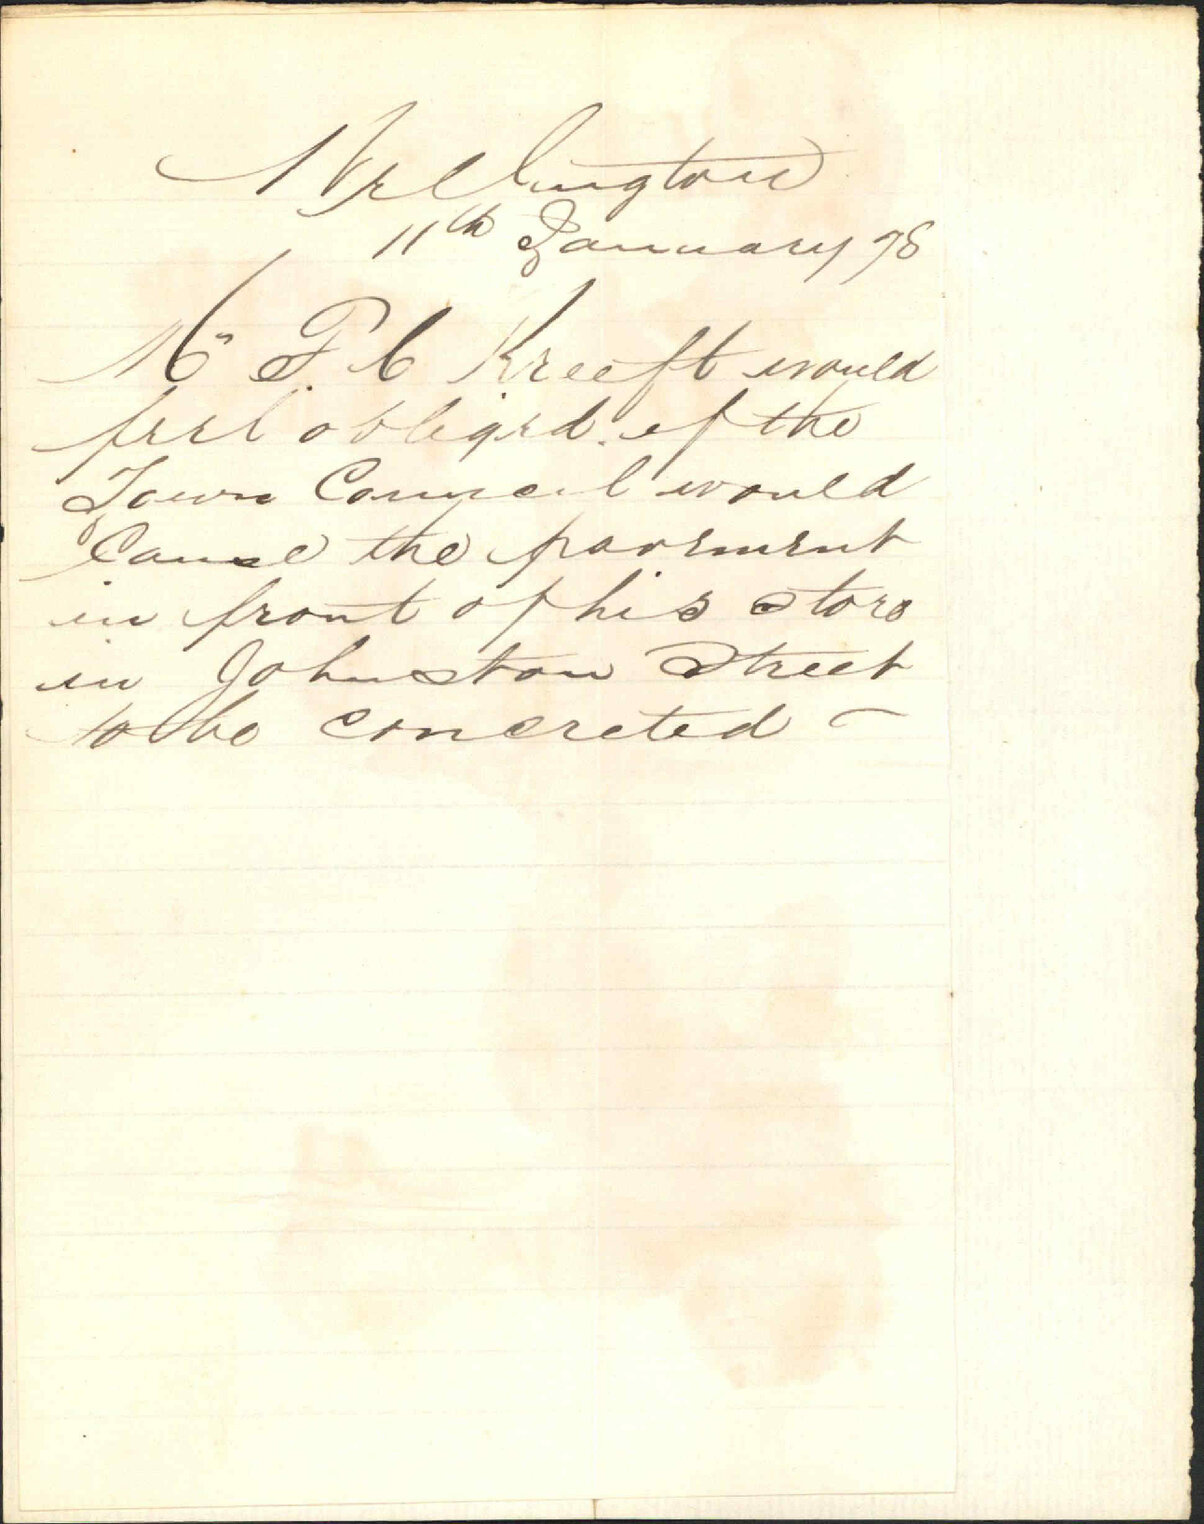 Wellington
11th January 78
Mr F. C Kreeft would
feel obliged. if the
Town Council would
Cause the pavement
in front of his store
in Johnston Street
to be concreted –